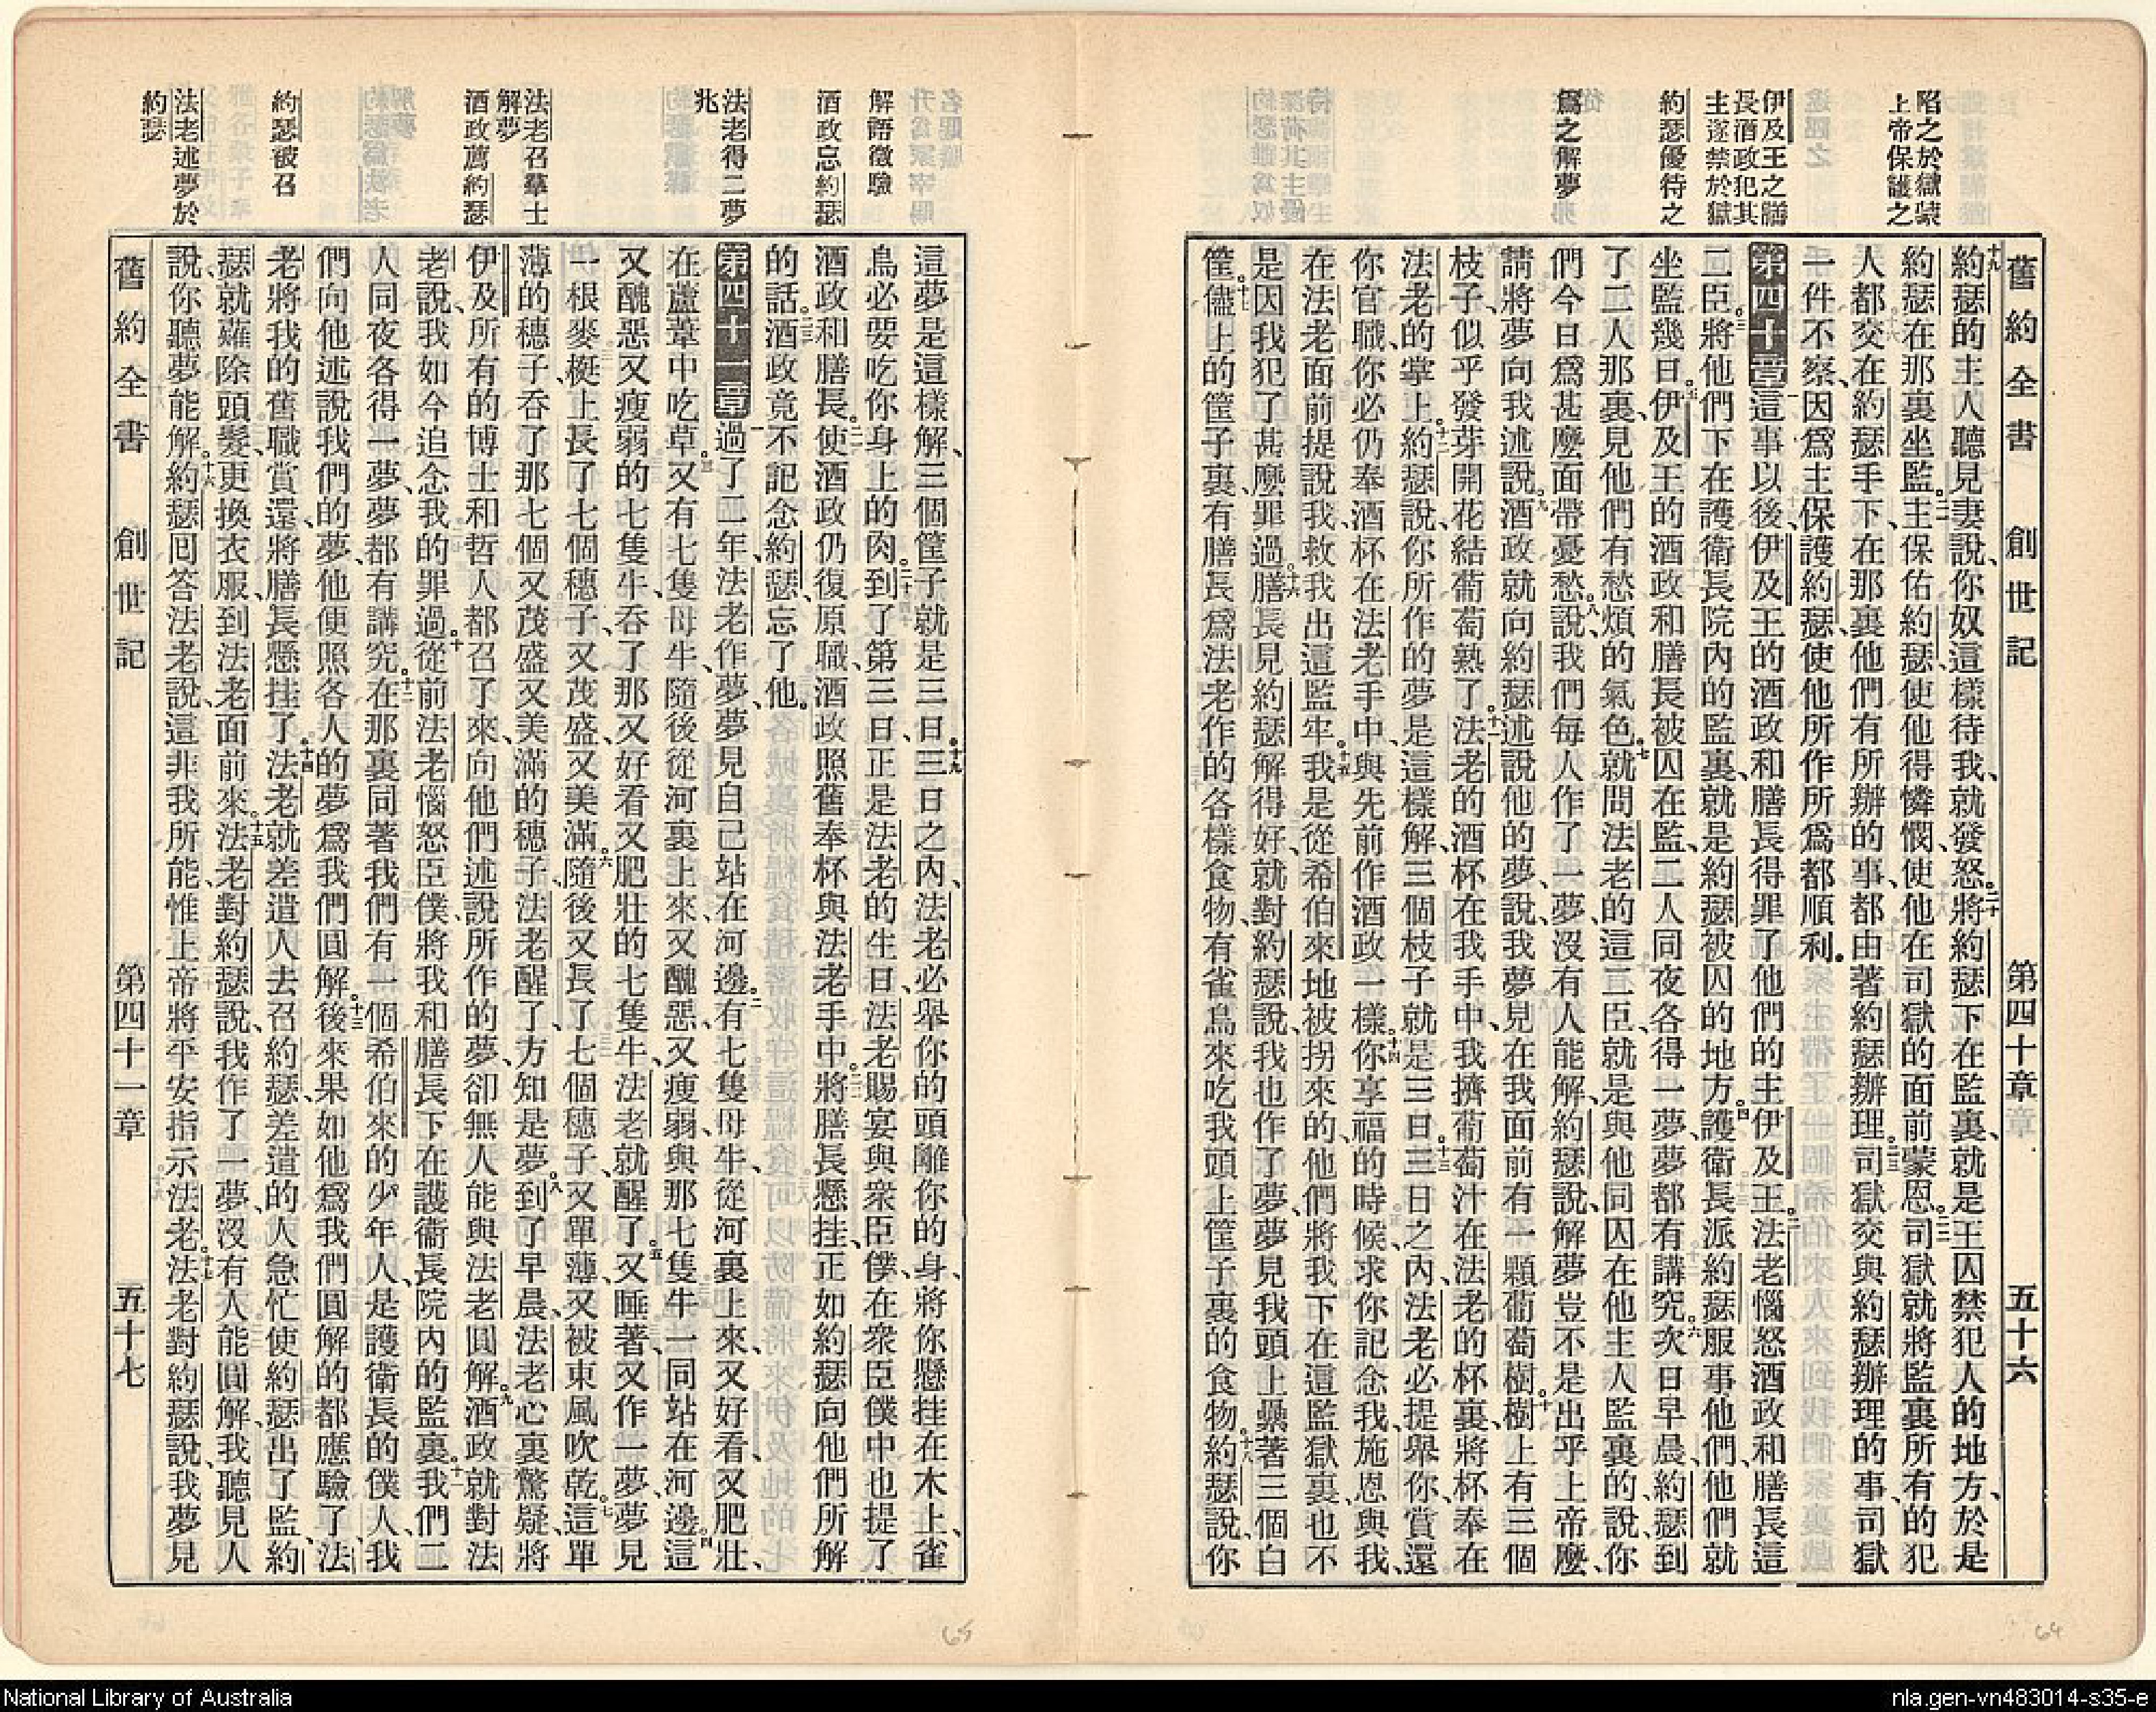 舊約全書 創世記 第四十章 五十六
陷之於獄蒙
上帝保護之
伊及王之膳
長酒政犯其
主遂禁於獄
約瑟優待之
爲之解夢
十九約瑟的主人聽見妻說、你奴這樣待我、就發怒。二十將約瑟下在監裏、就是王囚禁犯人的地方、於是
約瑟在那裏坐監。二一主保佑約瑟、使他得憐憫、使他在司獄的面前蒙恩。二二司獄就將監裏所有的犯
人都交在約瑟手下、在那裏他們有所辦的事、都由著約瑟辦理。二三司獄交與約瑟辦理的事、司獄
一件不察、因爲主保護約瑟、使他所作所爲都順利。
第四十章 一這事以後、伊及王的酒政和膳長得罪了他們的主伊及王。二法老惱怒酒政和膳長這
二臣。三將他們下在護衛長院內的監裏、就是約瑟被囚的地方。四護衛長派約瑟服事他們、他們就
坐監幾日。五伊及王的酒政和膳長被囚在監、二人同夜各得一夢、夢都有講究。六次日早晨、約瑟到
了二人那裏、見他們有愁煩的氣色。七就問法老的這二臣、就是與他同囚在他主人監裏的、說、你
們今日爲甚麼面帶憂愁。八說、我們每人作了一夢、沒有人能解、約瑟說、解夢豈不是出乎上帝麼、
請將夢向我述說。九酒政就向約瑟述說他的夢、說、我夢見在我面前有一顆葡萄樹。十樹上有三個
枝子、似乎發芽開花結葡萄熟了。十一法老的酒杯在我手中、我擠葡萄汁在法老的杯裏、將杯奉在
法老的掌上。十二約瑟說、你所作的夢是這樣解、三個枝子就是三日。十三三日之內、法老必提舉你、賞還
你官職、你必仍奉酒杯在法老手中、與先前作酒政一樣。十四你享福的時候、求你記念我、施恩與我、
在法老面前提說我、救我出這監牢。十五我是從希伯來地被拐來的、他們將我下在這監獄裏、也不
是因我犯了甚麼罪過。十六膳長見約瑟解得好、就對約瑟說、我也作了夢、夢見我頭上桑著三個白
筐。十七儘上的筐子裏、有膳長爲法老作的各樣食物、有雀鳥來吃我頭上筐子裏的食物。十八約瑟說、你
解語徵驗
酒政忘約瑟
法老得二夢
兆
法老召羣士
解夢
酒政薦約瑟
約瑟被召
法老述夢於
約瑟
這夢是這樣解、三個筐子就是三日。十九三日之內、法老必舉你的頭離你的身、將你懸挂在木上、雀
鳥必要吃你身上的肉。二十到了第三日、正是法老的生日、法老賜宴與衆臣僕、在衆臣僕中也提了
酒政和膳長。二一使酒政仍復原職、酒政照舊奉杯與法老手中。二二將膳長懸挂、正如約瑟向他們所解
的話。二三酒政竟不記念約瑟、忘了他。
第四十一章 一過了二年、法老作夢、夢見自己站在河邊。二有七隻母牛從河裏上來、又好看、又肥壯、
在蘆葦中吃草。三又有七隻母牛、隨後從河裏上來、又醜惡、又瘦弱、與那七隻牛一同站在河邊。四這
又醜惡又瘦弱的七隻牛、吞了那又好看又肥壯的七隻牛、法老就醒了。五又睡著、又作一夢、夢見
一根麥梃上長了七個穗子、又茂盛、又美滿。六隨後又長了七個穗子、又單薄、又被東風吹乾。七這單
薄的穗子、吞了那七個又茂盛又美滿的穗子、法老醒了、方知是夢。八到了早晨、法老心裏驚疑、將
伊及所有的博士和哲人都召了來、向他們述說所作的夢、卻無人能與法老圓解。九酒政就對法
老說、我如今追念我的罪過。十從前法老惱怒臣僕、將我和膳長下在護衛長院內的監裏。十一我們二
人同夜各得一夢、夢都有講究。十二在那裏同著我們有一個希伯來的少年人、是護衛長的僕人、我
們向他述說我們的夢、他便照各人的夢爲我們圓解。十三後來果如他爲我們圓解的都應驗了、法
老將我的舊職賞還、將膳長懸挂了。十四法老就差遣人去召約瑟、差遣的人急忙使約瑟出了監、約
瑟就薙除頭髮、更換衣服、到法老面前來。十五法老對約瑟說、我作了一夢、沒有人能圓解、我聽見人
說、你聽夢能解。十六約瑟囘答法老說、這非我所能、惟上帝將平安指示法老。十七法老對約瑟說、我夢見
舊約全書 創世記 第四十一章 五十七
65
64
National Library of Australia
nla.gen-vn483014-s35-e